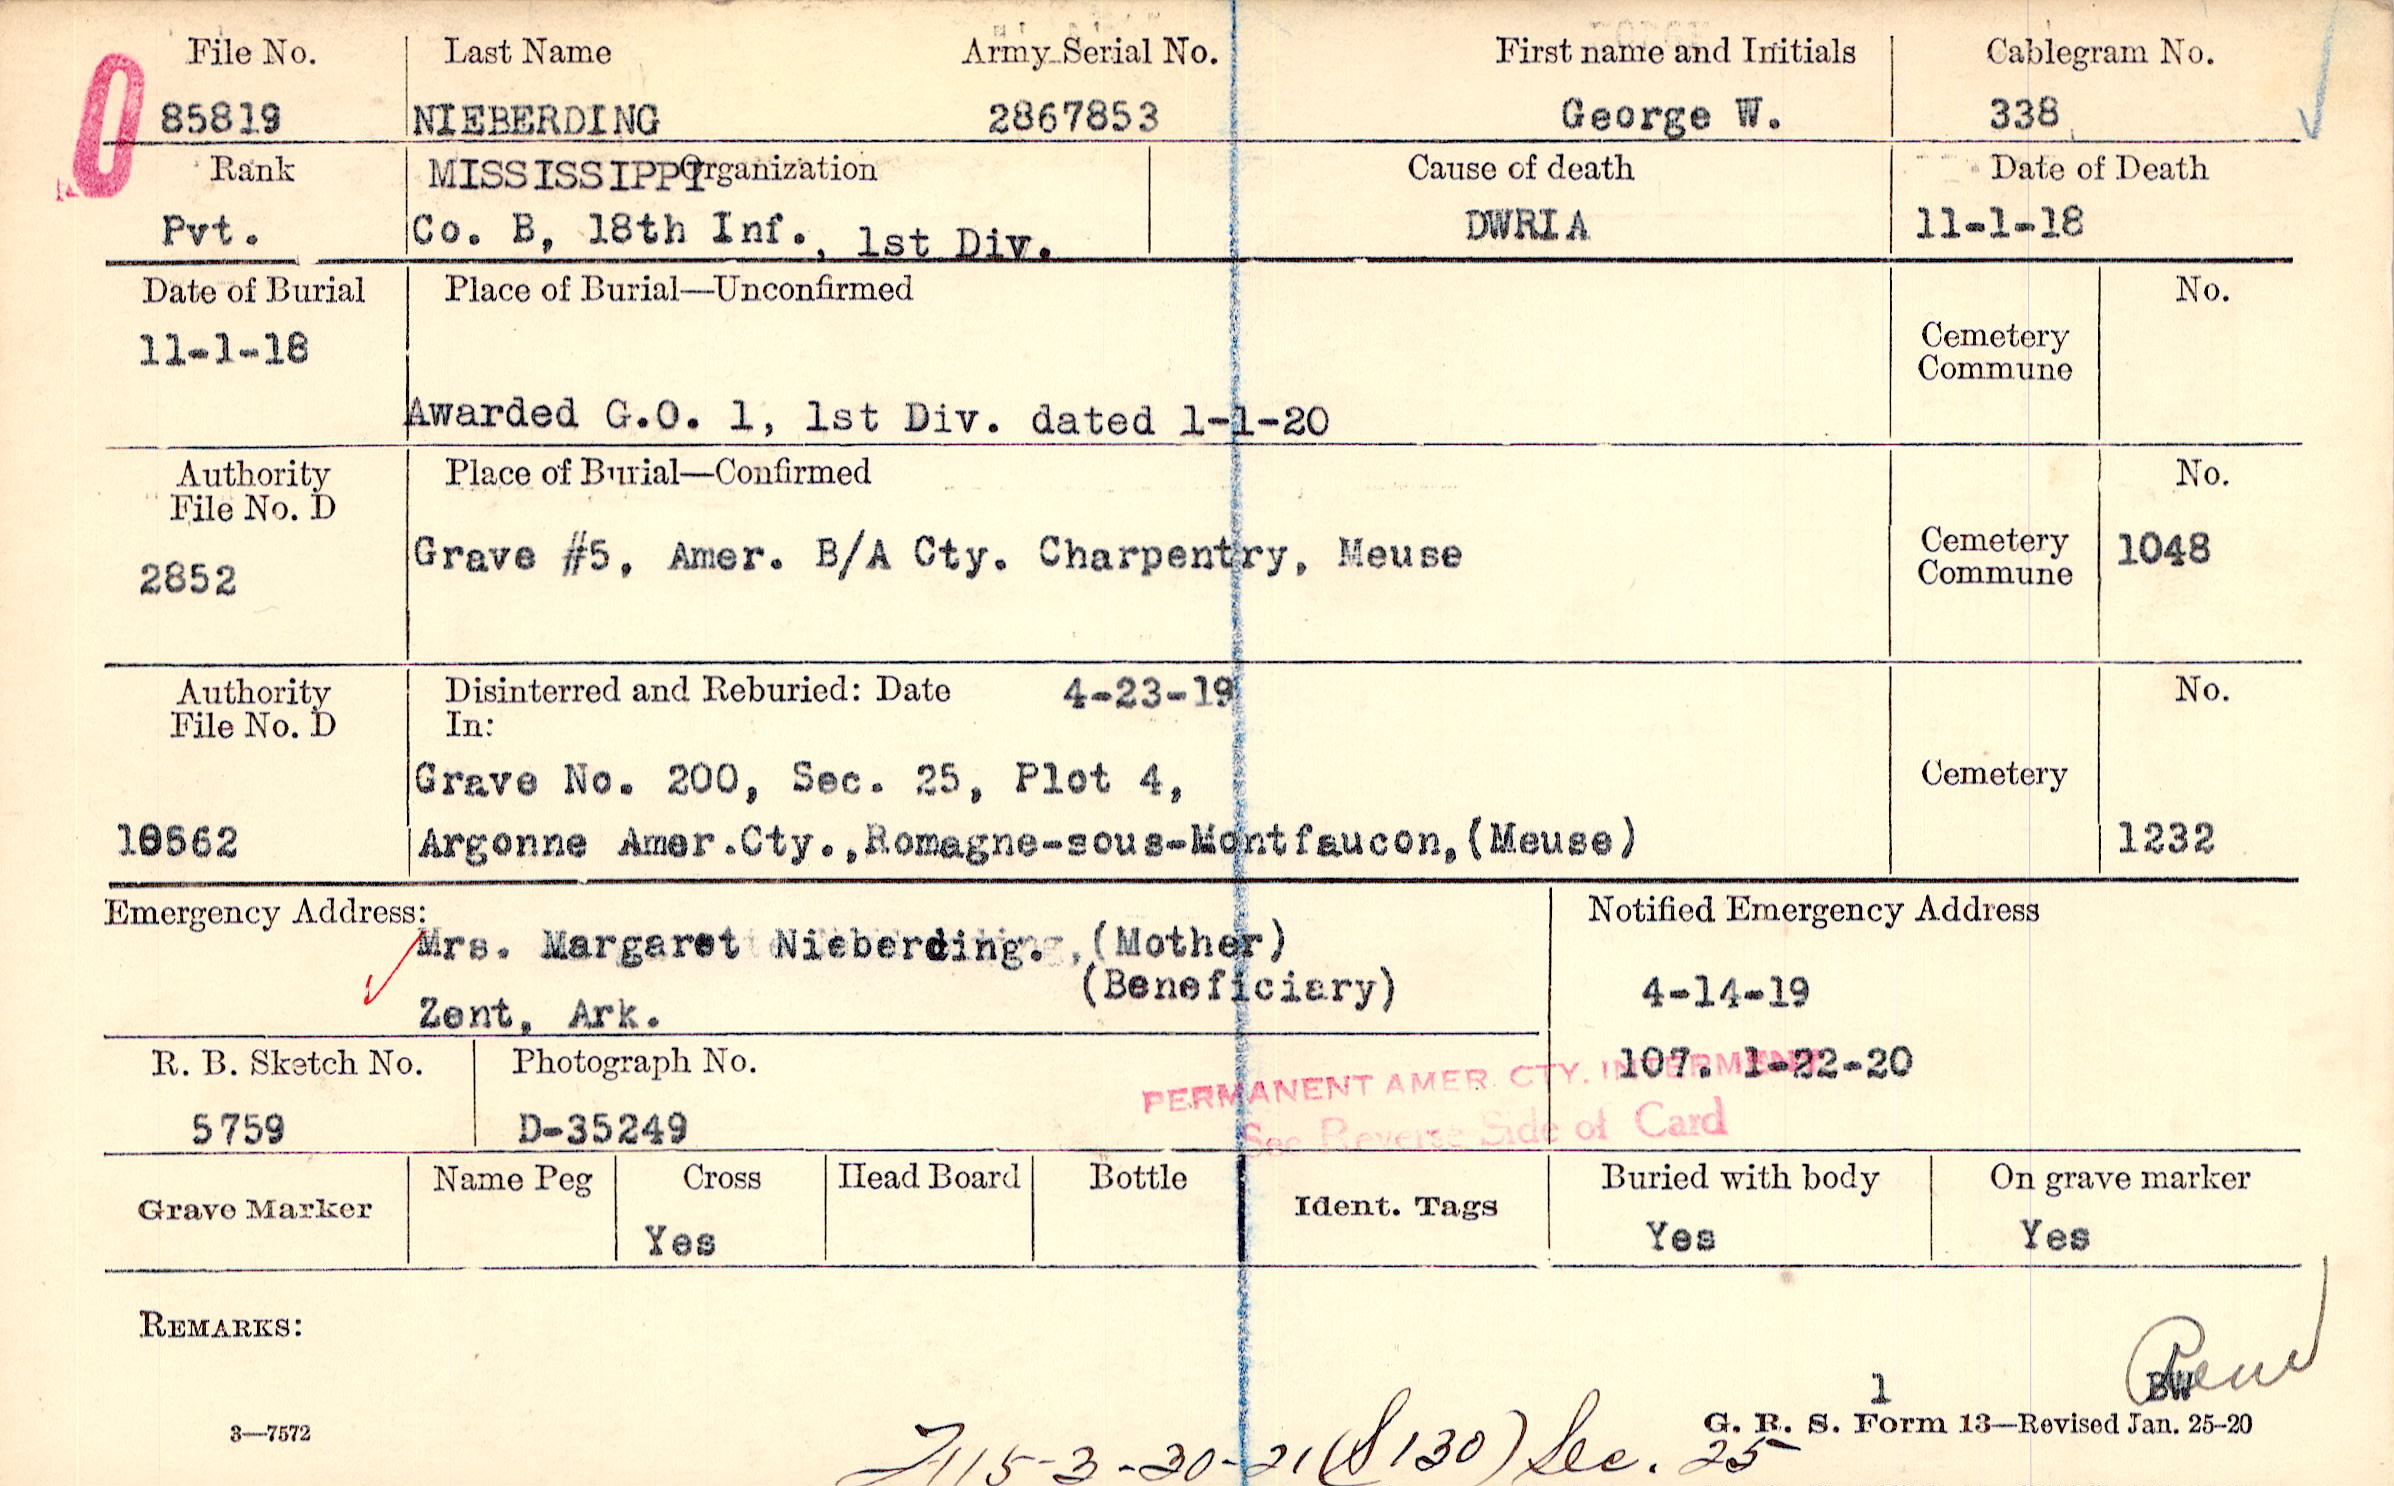 File No. Last Name Army Serial No. First name and Initials Cablegram No.
0 85819 NIEBERDING 2867853 George W. 338
Rank MISSISSIPPI Organization Cause of death Date of Death
Pvt. Co. B, 18th Inf., 1st Div. DWRIA 11-1-18
Date of Burial Place of Burial—Unconfirmed No.
11-1-18 Cemetery
Commune
Awarded G.O. 1, 1st Div. dated 1-1-20
Authority Place of Burial—Confirmed No.
File No. D
2852 Grave #5, Amer. B/A Cty. Charpentry, Meuse Cemetery 1048
Commune
Authority Disinterred and Reburied: Date 4-23-19 No.
File No. D In:
Grave No. 200, Sec. 25, Plot 4, Cemetery
Argonne Amer.Cty.,Romagne-sous-Montfaucon,(Meuse) 1232
Emergency Address: Notified Emergency Address
Mrs. Margaret Nieberding. ,(Mother)
(Beneficiary) 4-14-19
Zent, Ark.
R. B. Sketch No. Photograph No. 107. 1-22-20
PERMANENT AMER. CTY. INTERMENT
5759 D-35249 See Reverse Side of Card
Grave Marker Name Peg Cross Head Board Bottle Ident. Tags Buried with body On grave marker
Yes Yes Yes
REMARKS:
1 BW
3—7572 G. R. S. Form 13—Revised Jan. 25-20
3-30-21 (S130) Sec. 25